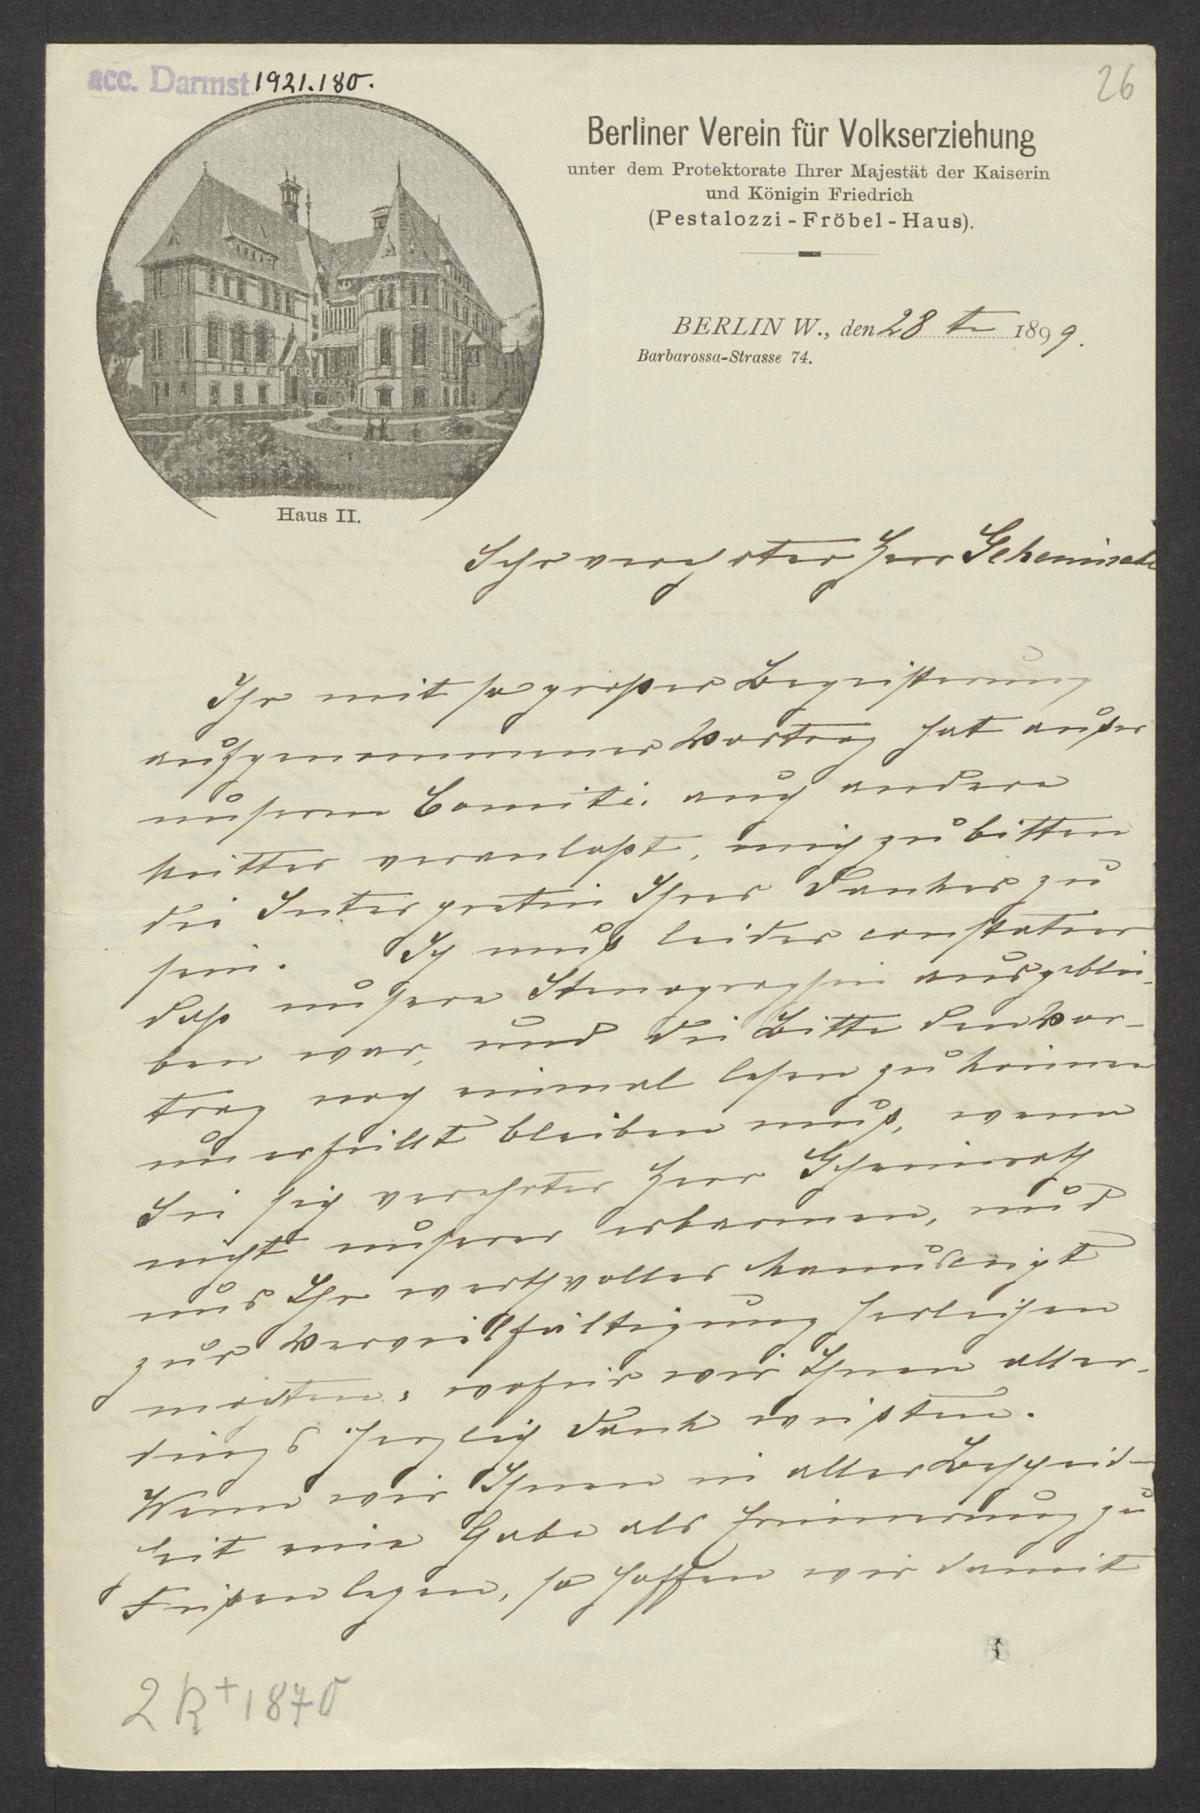 acc. Darmst. 1921.180.
26
Berliner Verein für Volkserziehung
unter dem Protektorate Ihrer Majestät der Kaiserin
und Königin Friedrich
(Pestalozzi-Fröbel-Haus).
BERLIN W., den 28 1899.
Barbarossa-Strasse 74.
Haus II.
Sehr verehrter Herr Geheimrath
Ihr mit so großer Begeisterung
aufgenommener Vortrag hat außer
unserm Comité auch andere
Mütter veranlaßt, mich zu bitten
die Interpretin Ihres Dankes zu
sein. Ich muß leider constatiren
daß unsere Stenographin ausgeblie-
ben war, und die Bitte den Vor-
trag noch einmal lesen zu können
unerfüllt bleiben muß, wenn
Sie sich verehrter Herr Geheimrath
nicht unserer erbarmen, und
uns Ihr werthvolles Manuscript
zur Vervielfältigung herleihen
möchten, wofür wir Ihnen aller-
dings herzlich Dank wüßten.
Wenn wir Ihnen in aller Bescheiden-
heit eine Gabe als Erinnerung zu
Füßen legen, so hoffen wir damit
1870